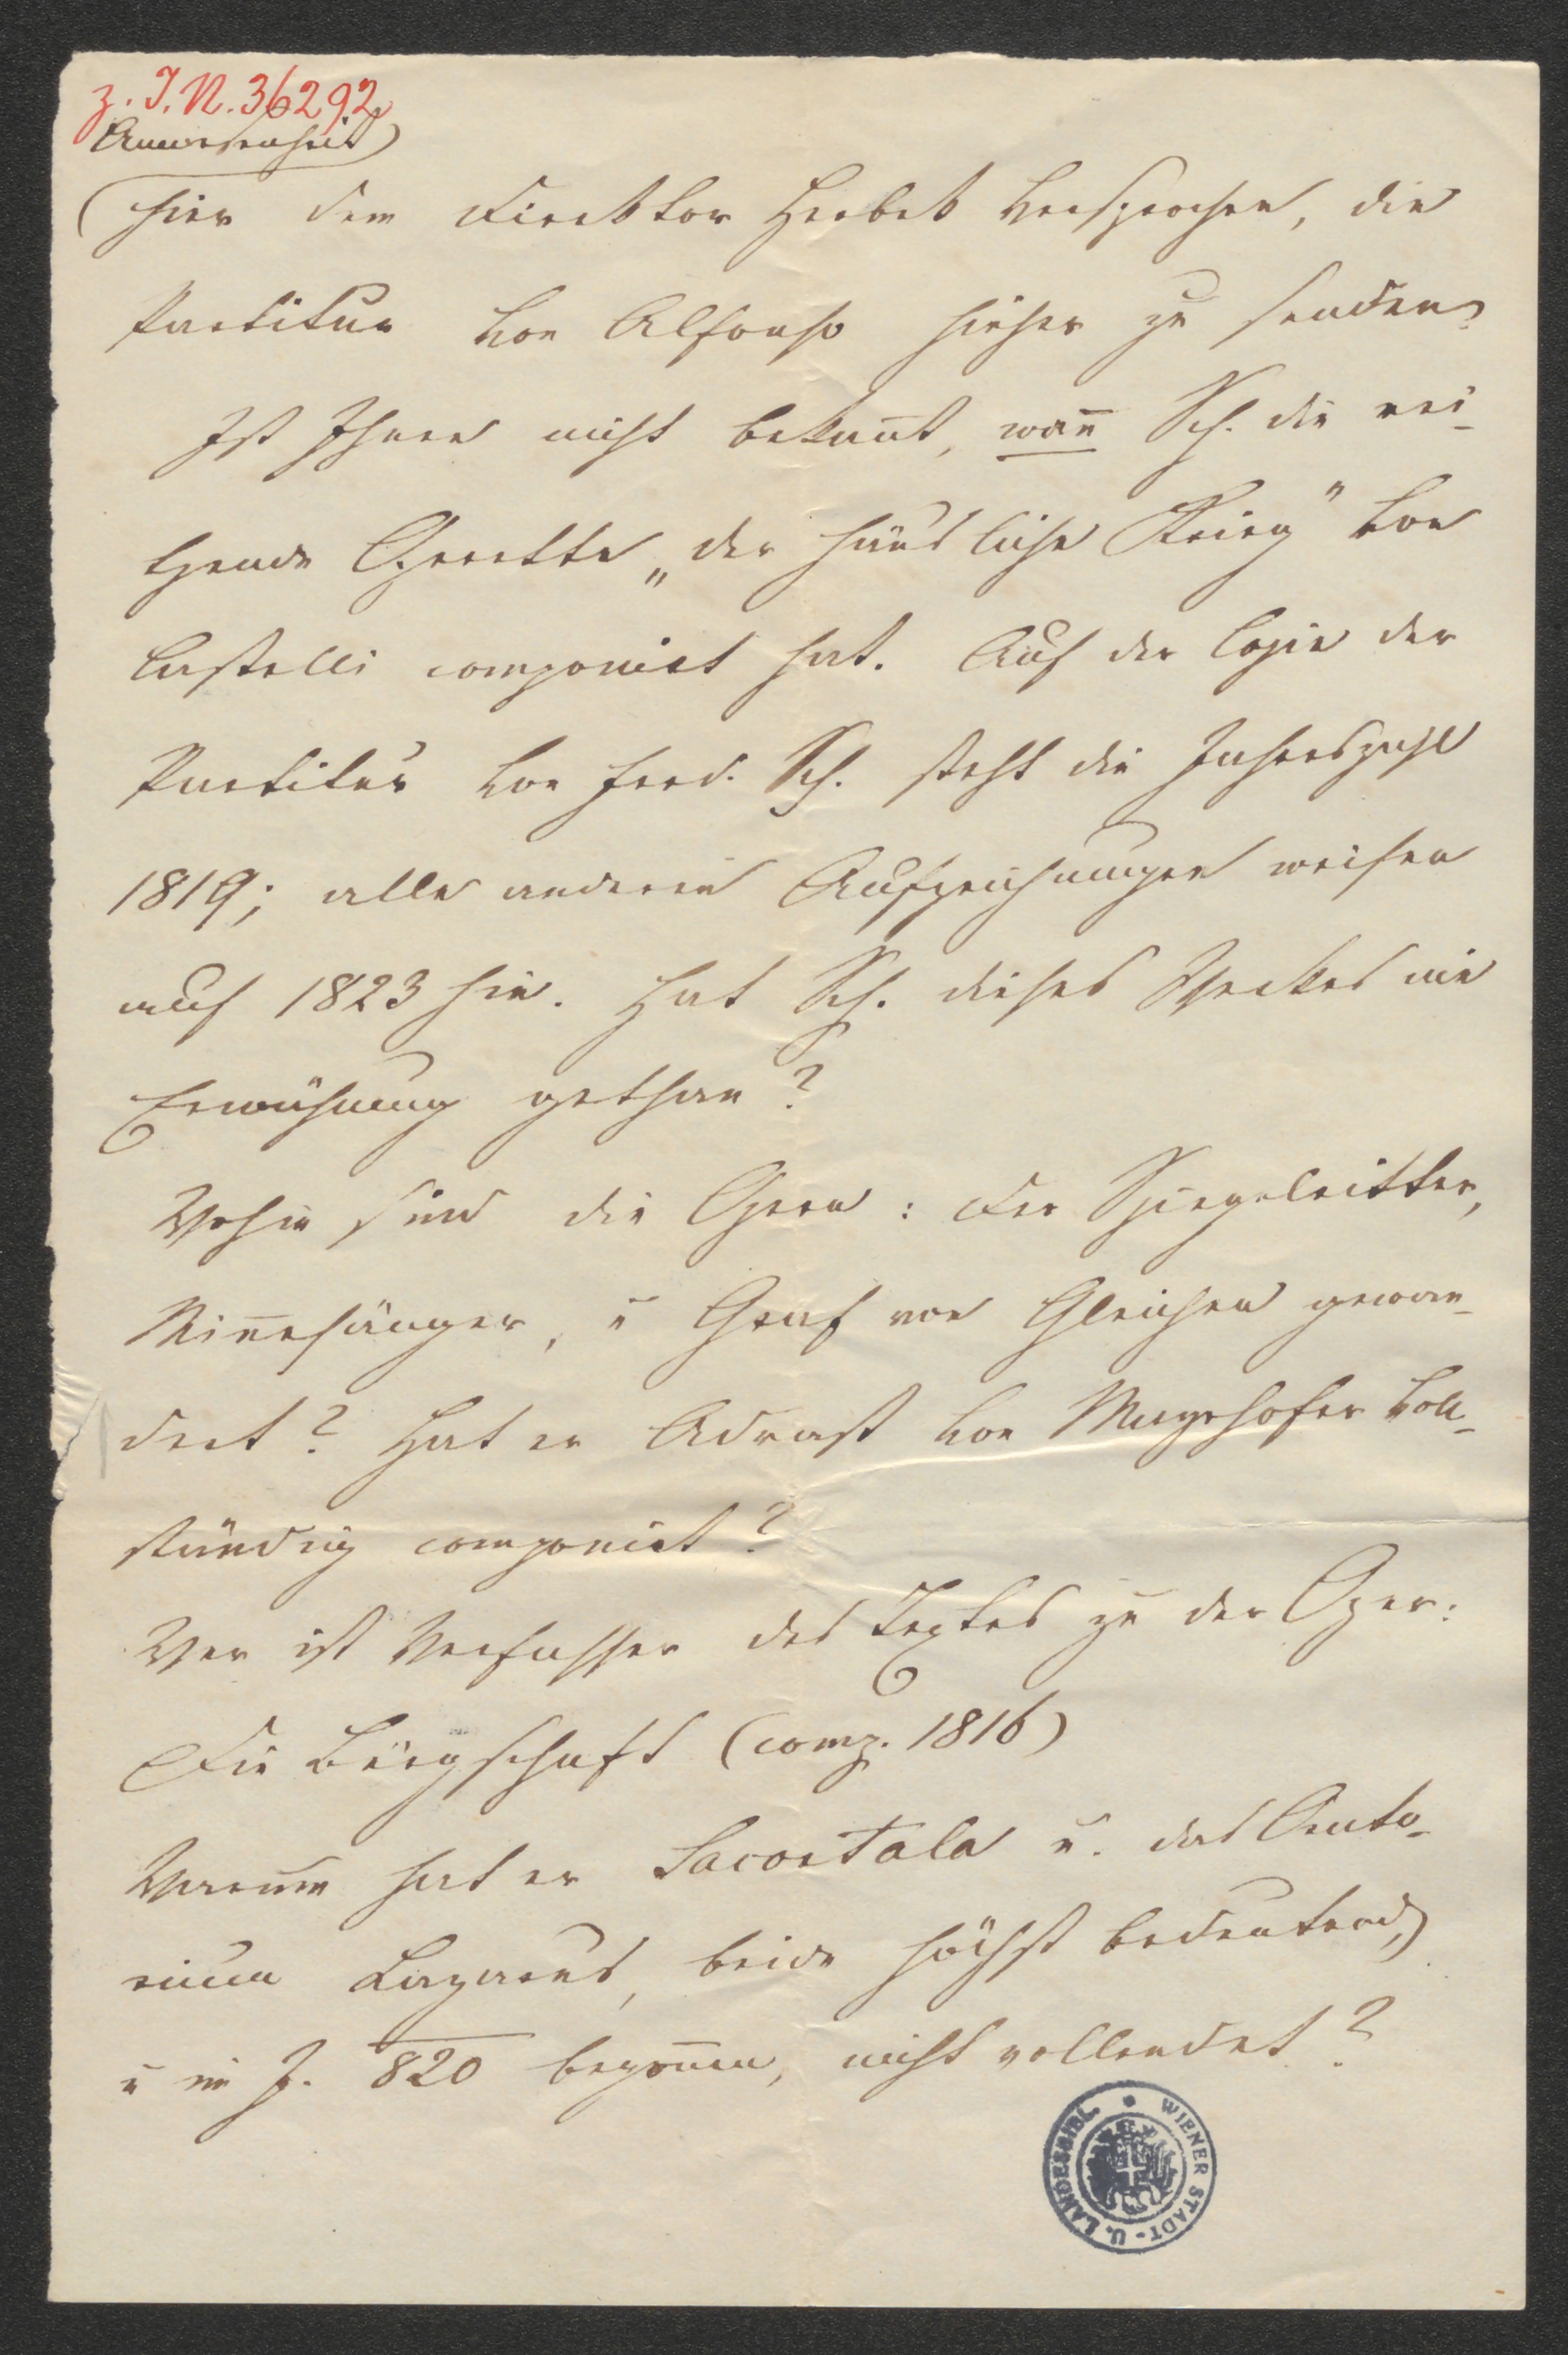 z. I.N. 36292
Anwesenheit
hier dem Direktor Herbek versprochen, die
Partitur von Alfonso hieher zu senden?
Ist Ihnen nicht bekan̄t, wan̄ Sch. die rei-
zende Operette „der häusliche Krieg" von
Castelli componirt hat. Auf der Copie der
Partitur von Ferd. Sch. steht die Jahreszahl
1819; alle anderen Aufzeichnungen weisen
auf 1823 hin. Hat Sch. dieses Werkes nie
Erwähnung gethan?
Wohin sind die Opern: Der Spiegelritter,
Min̄esänger, u Graf von Gleichen gewan-
dert? Hat er Adrast von Mayrhofer voll-
ständig componirt?
Wer ist Verfasser des Textes zu der Oper:
Die Bürgschaft (comp. 1816)
Warum hat er Sacontala u. das Orato-
rium Lazarus, beide höchst bedeutend,
u im J. 820 begon̄en, nicht vollendet?
WIENER STADT- U. LANDESBIBL.